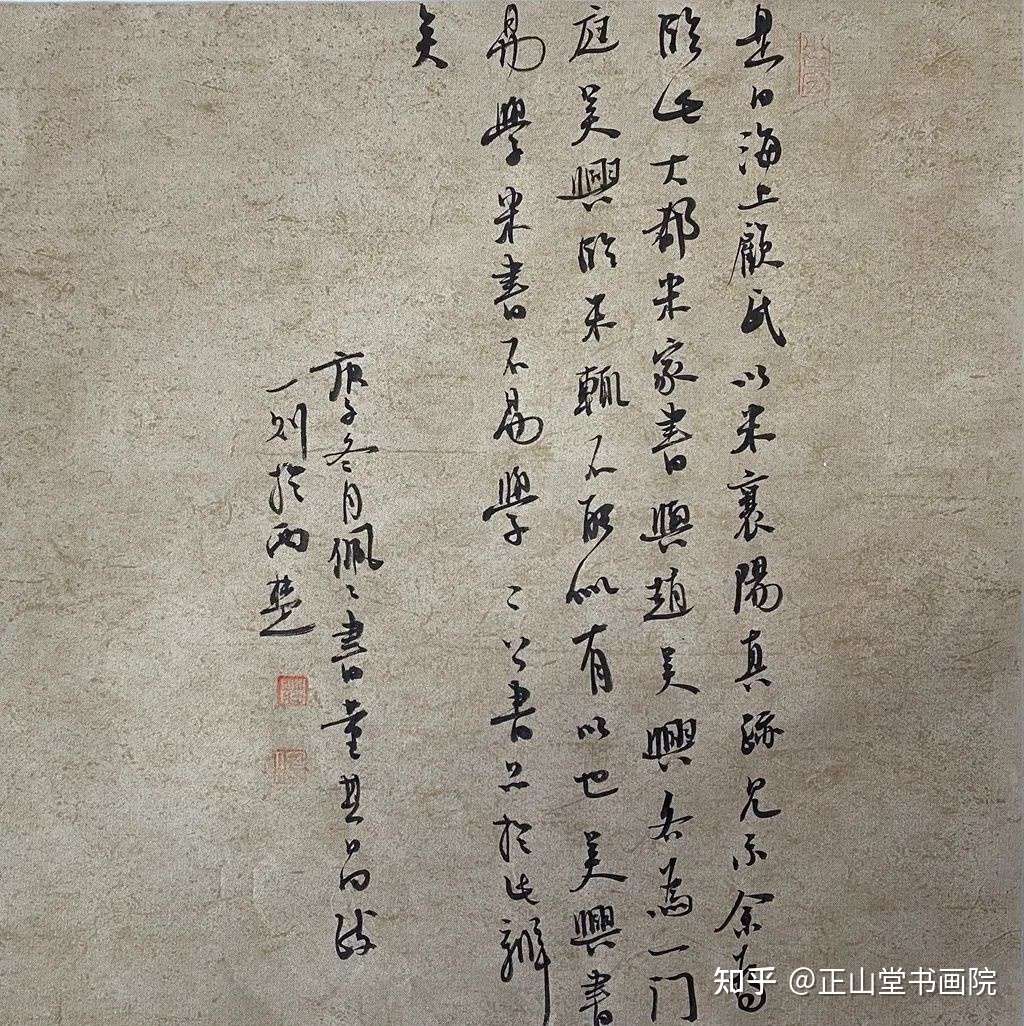 是日海上顧氏以米襄陽真跡見示余為
臨此大都米家書與趙吳興各為一門
庭吳興臨米輒不能似有以也吳興書
易學米書不易學二公書品於此辨
矣
庚子冬月佩〻書董其昌跋
一則於兩楚
知乎 @正山堂书画院